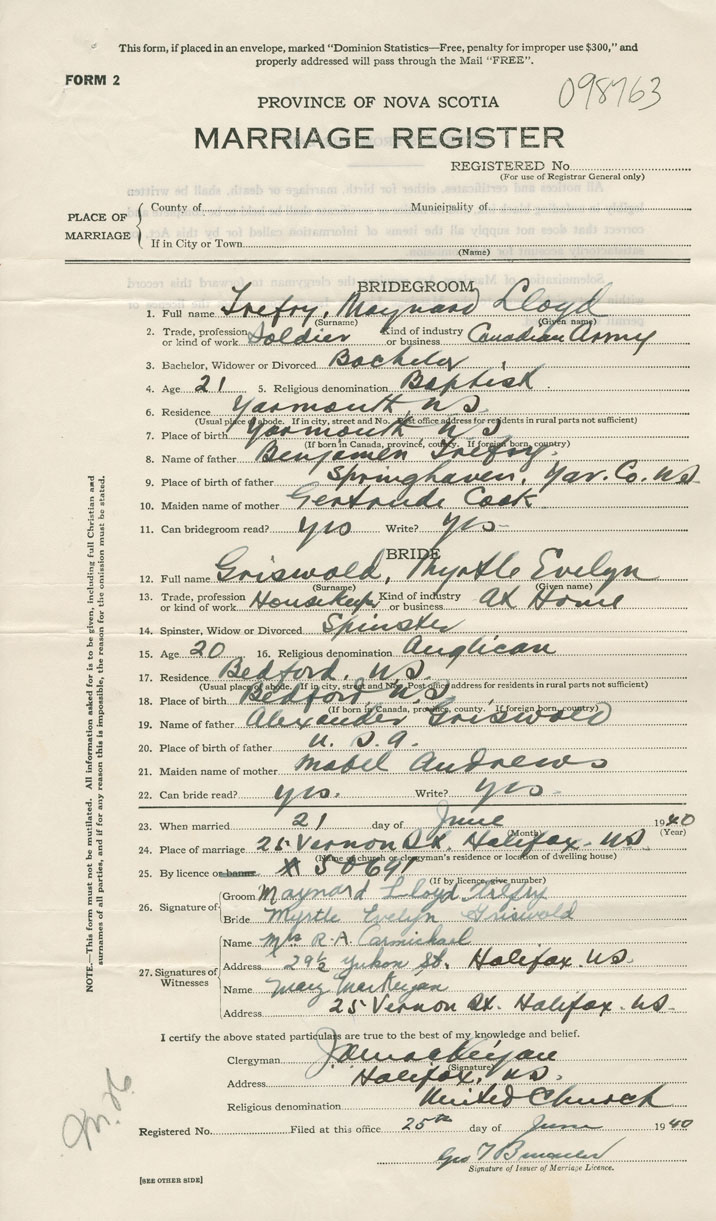 This form, if placed in an envelope, marked "Dominion Statistics—Free, penalty for improper use $300," and
properly addressed will pass through the Mail "FREE".
FORM 2
098763
PROVINCE OF NOVA SCOTIA
MARRIAGE REGISTER
REGISTERED No.
(For use of Registrar General only)
PLACE OF MARRIAGE
County of Municipality of
If in City or Town
(Name)
BRIDEGROOM
1. Full name Trefry, Maynard Lloyd
(Surname) (Given name)
2. Trade, profession or kind of work Soldier Kind of industry or business Canadian Army
3. Bachelor, Widower or Divorced Bachelor
4. Age 21 5. Religious denomination Baptist
6. Residence Yarmouth N S.
(Usual place of abode. If in city, street and No. Post office address for residents in rural parts not sufficient)
7. Place of birth Yarmouth N S
(If born in Canada, province, county. If foreign born, country)
8. Name of father Benjamen Trefry.
9. Place of birth of father Springhaven, Yar. Co. N S
10. Maiden name of mother Gertrude Cook
11. Can bridegroom read? yes Write? yes
BRIDE
12. Full name Griswold, Myrtle Evelyn
(Surname) (Given name)
13. Trade, profession or kind of work Housekeeper Kind of industry or business At Home
14. Spinster, Widow or Divorced Spinster
15. Age 20 16. Religious denomination Anglican
17. Residence Bedford, N.S.
(Usual place of abode. If in city, street and No. Post office address for residents in rural parts not sufficient)
18. Place of birth Bedford, N.S.
(If born in Canada, province, county. If foreign born, country)
19. Name of father Alexander Griswold
20. Place of birth of father U. S. A.
21. Maiden name of mother Mabel Andrews
22. Can bride read? yes. Write? yes.
23. When married 21 day of June 1940
(Month) (Year)
24. Place of marriage 25 Vernon St. Halifax. N S
(Name of church or clergyman's residence or location of dwelling house)
25. By licence or banns 50691
(If by licence, give number)
26. Signature of
Groom Maynard Lloyd Trefry
Bride Myrtle Evelyn Griswold
27. Signatures of Witnesses
Name Mrs R. A. Carmichael
Address 29½ Yukon St. Halifax. N S.
Name Mary MacKeigan
Address 25 Vernon St. Halifax. N S.
I certify the above stated particulars are true to the best of my knowledge and belief.
Clergyman
(Signature)
Address Halifax, N.S.
Religious denomination United Church
Registered No. Filed at this office 25th day of June 1940
Signature of Issuer of Marriage Licence.
[SEE OTHER SIDE]
NOTE.—This form must not be mutilated. All information asked for is to be given, including full Christian and
surnames of all parties, and if for any reason this is impossible, the reason for the omission must be stated.